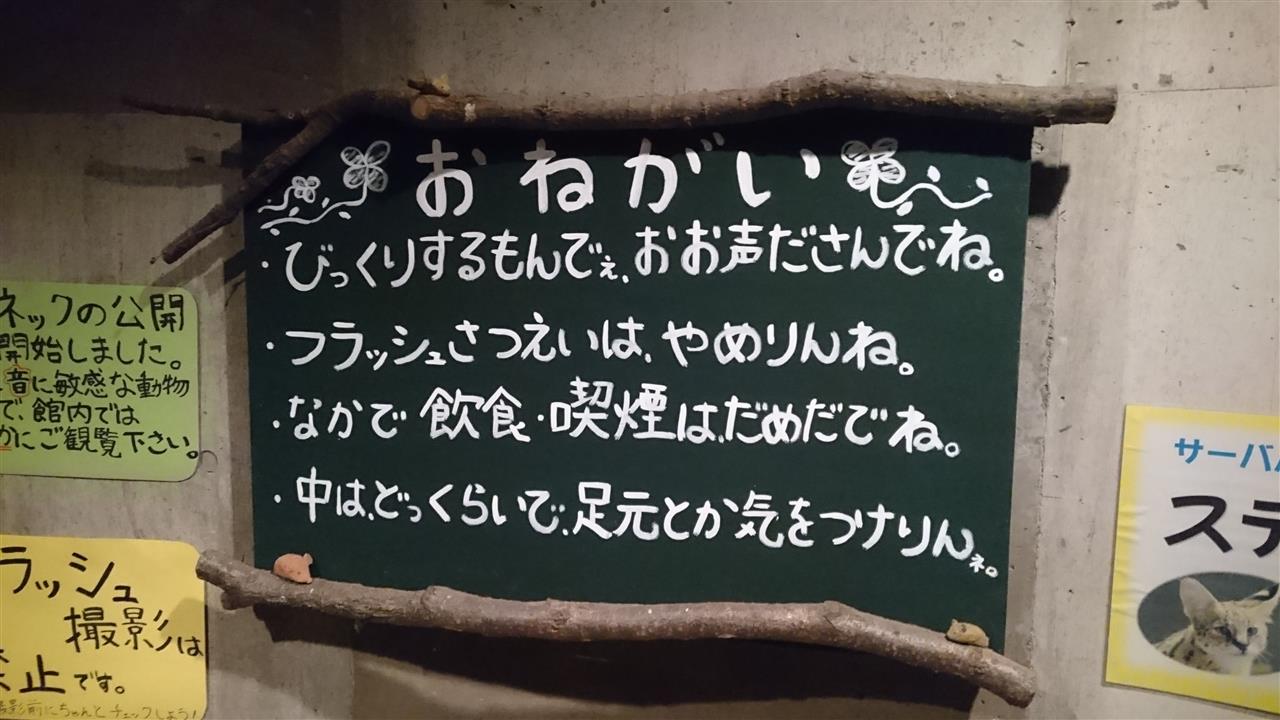 おねがい
・びっくりするもんでぇ、おお声ださんでね。
・フラッシュさつえいは、やめりんね。
・なかで飲食・喫煙は、だめだでね。
・中は、どっくらいで、足元とか気をつけりんネ。
ネックの公開
開始しました。
音に敏感な動物
で、館内では
かにご観覧下さい。
ラッシュ
撮影は
止です。
影前にちゃんとチェックしよう!
サーバル
ステ